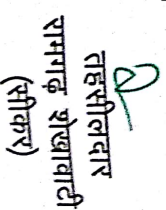 तहसीलदार
रामगढ़ शेखावाटी
(सीकर)